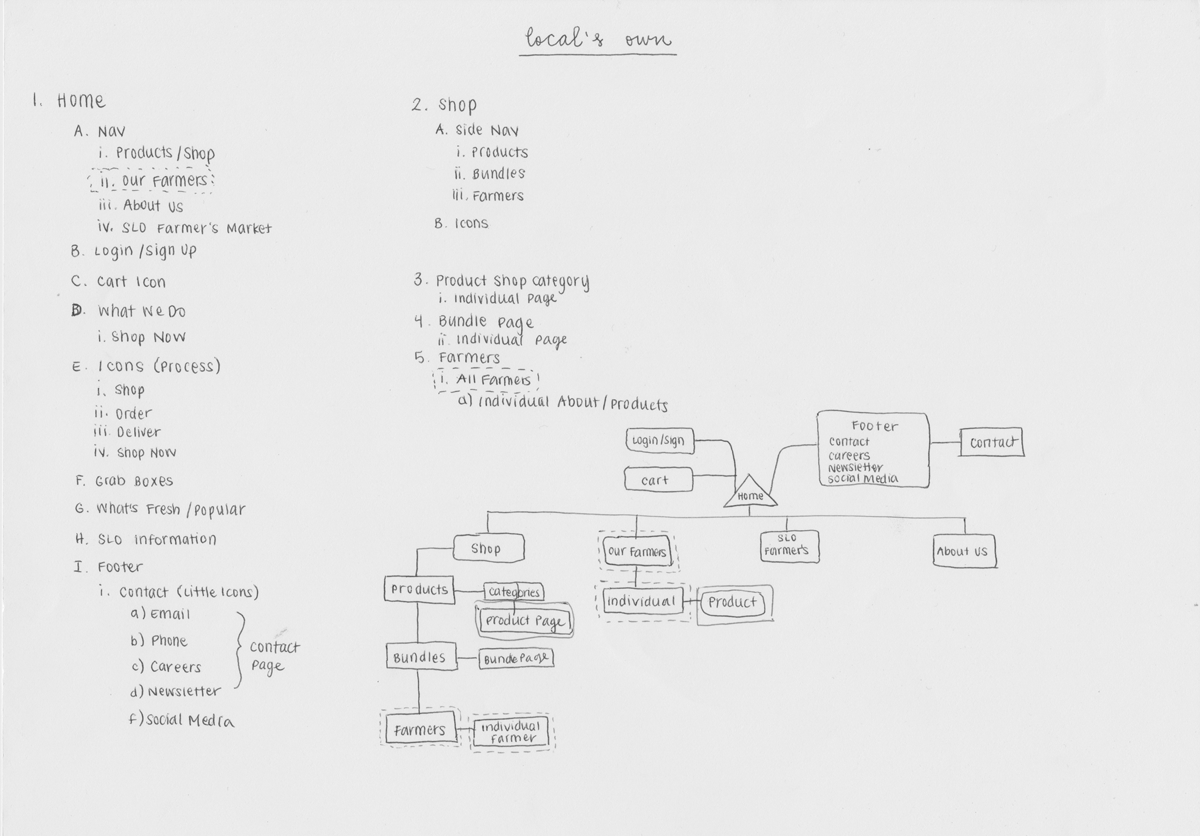 local's own
1. Home
A. Nav
i. Products/Shop
ii. Our Farmers
iii. About Us
iv. SLO Farmer's Market
B. Login/Sign Up
C. Cart Icon
D. What We Do
i. Shop Now
E. Icons (Process)
i. Shop
ii. Order
iii. Deliver
iv. Shop Now
F. Grab Boxes
G. What's Fresh/Popular
H. SLO Information
I. Footer
i. Contact (Little Icons)
a) Email
b) Phone
c) Careers
d) Newsletter
f) Social Media
Contact
Page
2. Shop
A. Side Nav
i. Products
ii. Bundles
iii. Farmers
B. Icons
3. Product Shop Category
i. Individual Page
4. Bundle Page
ii. Individual Page
5. Farmers
i. All Farmers
a) Individual About/Products
Login/Sign
Cart
Home
Footer
Contact
Careers
Newsletter
Social Media
Contact
Shop
Our Farmers
SLO
Farmer's
About Us
Products
Categories
Product Page
Individual
Product
Bundles
Bunde Page
Farmers
Individual
Farmer